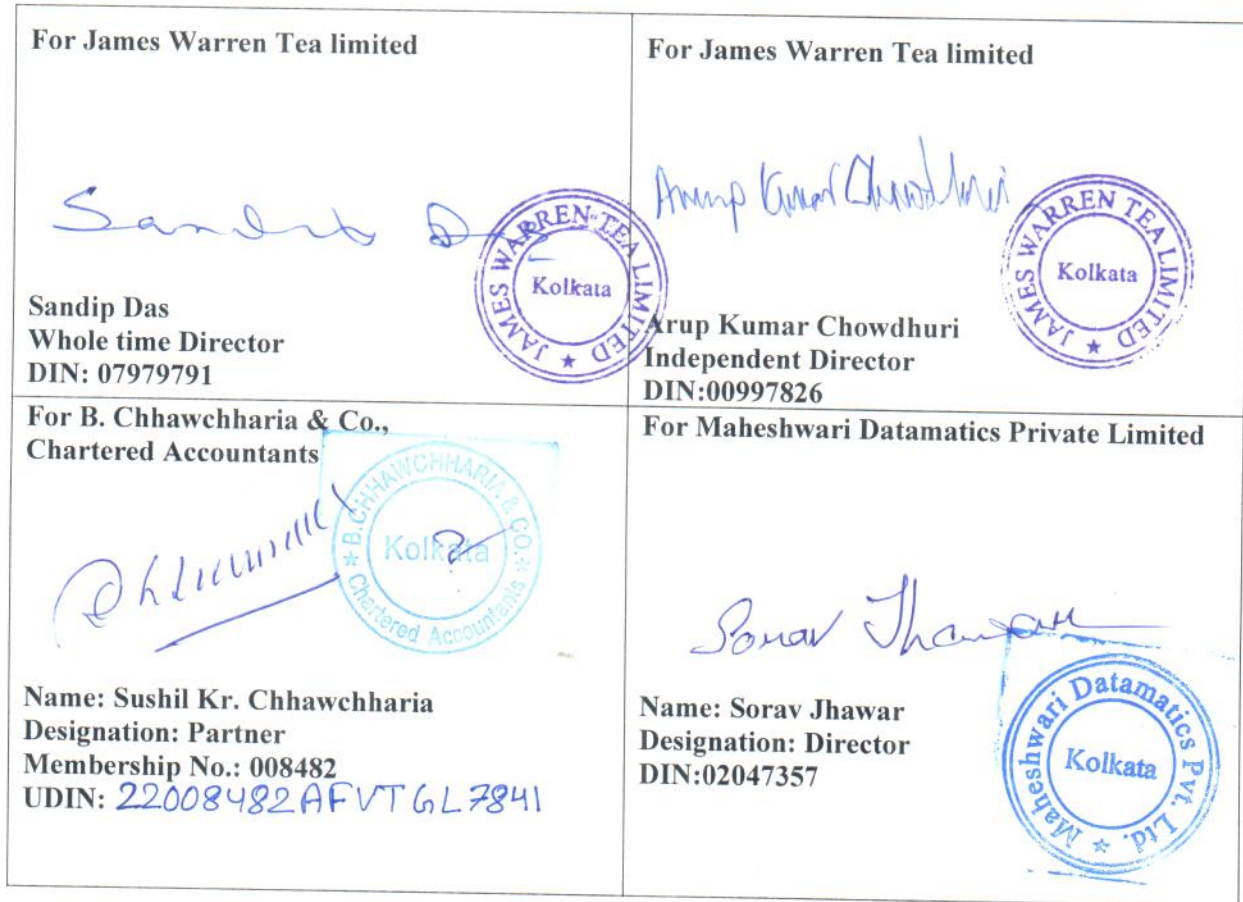 For James Warren Tea limited
Sandip Das
JAMES WARREN TEA LIMITED
Kolkata
Sandip Das
Whole time Director
DIN: 07979791
For James Warren Tea limited
Arup Kumar Chowdhuri
JAMES WARREN TEA LIMITED
Kolkata
Arup Kumar Chowdhuri
Independent Director
DIN:00997826
For B. Chhawchharia & Co.,
Chartered Accountants
B.CHHAWCHHARIA & CO.
Kolkata
Chartered Accountants
Name: Sushil Kr. Chhawchharia
Designation: Partner
Membership No.: 008482
UDIN: 22008482AFVTGL7841
For Maheshwari Datamatics Private Limited
Sorav Jhawar
Maheshwari Datamatics Pvt. Ltd.
Kolkata
Name: Sorav Jhawar
Designation: Director
DIN:02047357